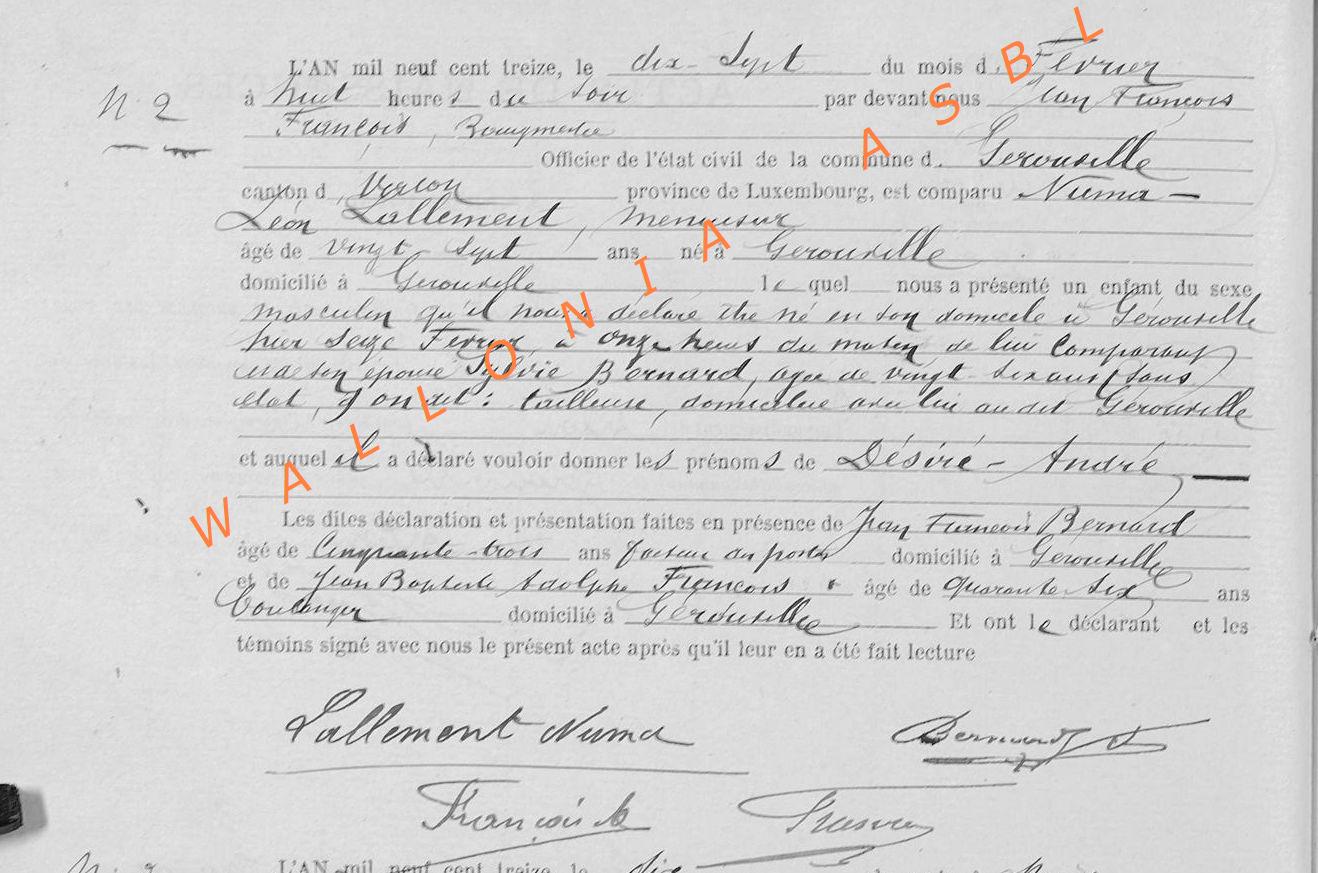 L'AN mil neuf cent treize, le dix-sept du mois d. Février
N. 2
à huit heures du soir par devant nous Jean François
François, Bourgmestre
Officier de l'état civil de la commune d. Gerouville
canton d Virton province de Luxembourg, est comparu Numa —
Léon Lallement, menuisier
âgé de vingt sept ans né à Gerouville
domicilié à Gerouville le quel nous a présenté un enfant du sexe
masculin qu'il nous a déclaré être né en son domicile à Gérouville
hier seize Février à onze heures du matin de lui Comparant
et de son épouse Sylvie Bernard, agée de vingt six ans sans
état, : tailleuse, domiciliée avec lui au dit Gérouville
et auquel il a déclaré vouloir donner les prénoms de Désiré - André
Les dites déclaration et présentation faites en présence de Jean François Bernard
âgé de Cinquante-trois ans facteur des postes domicilié à Gerouville
et de Jean Baptiste Adolphe François âgé de quarante six ans
boulanger domicilié à Gérouville Et ont le déclarant et les
témoins signé avec nous le présent acte après qu'il leur en a été fait lecture
Lallement Numa
Bernard
François
L'AN mil neuf cent treize, le dix
WALLONIA ASBL